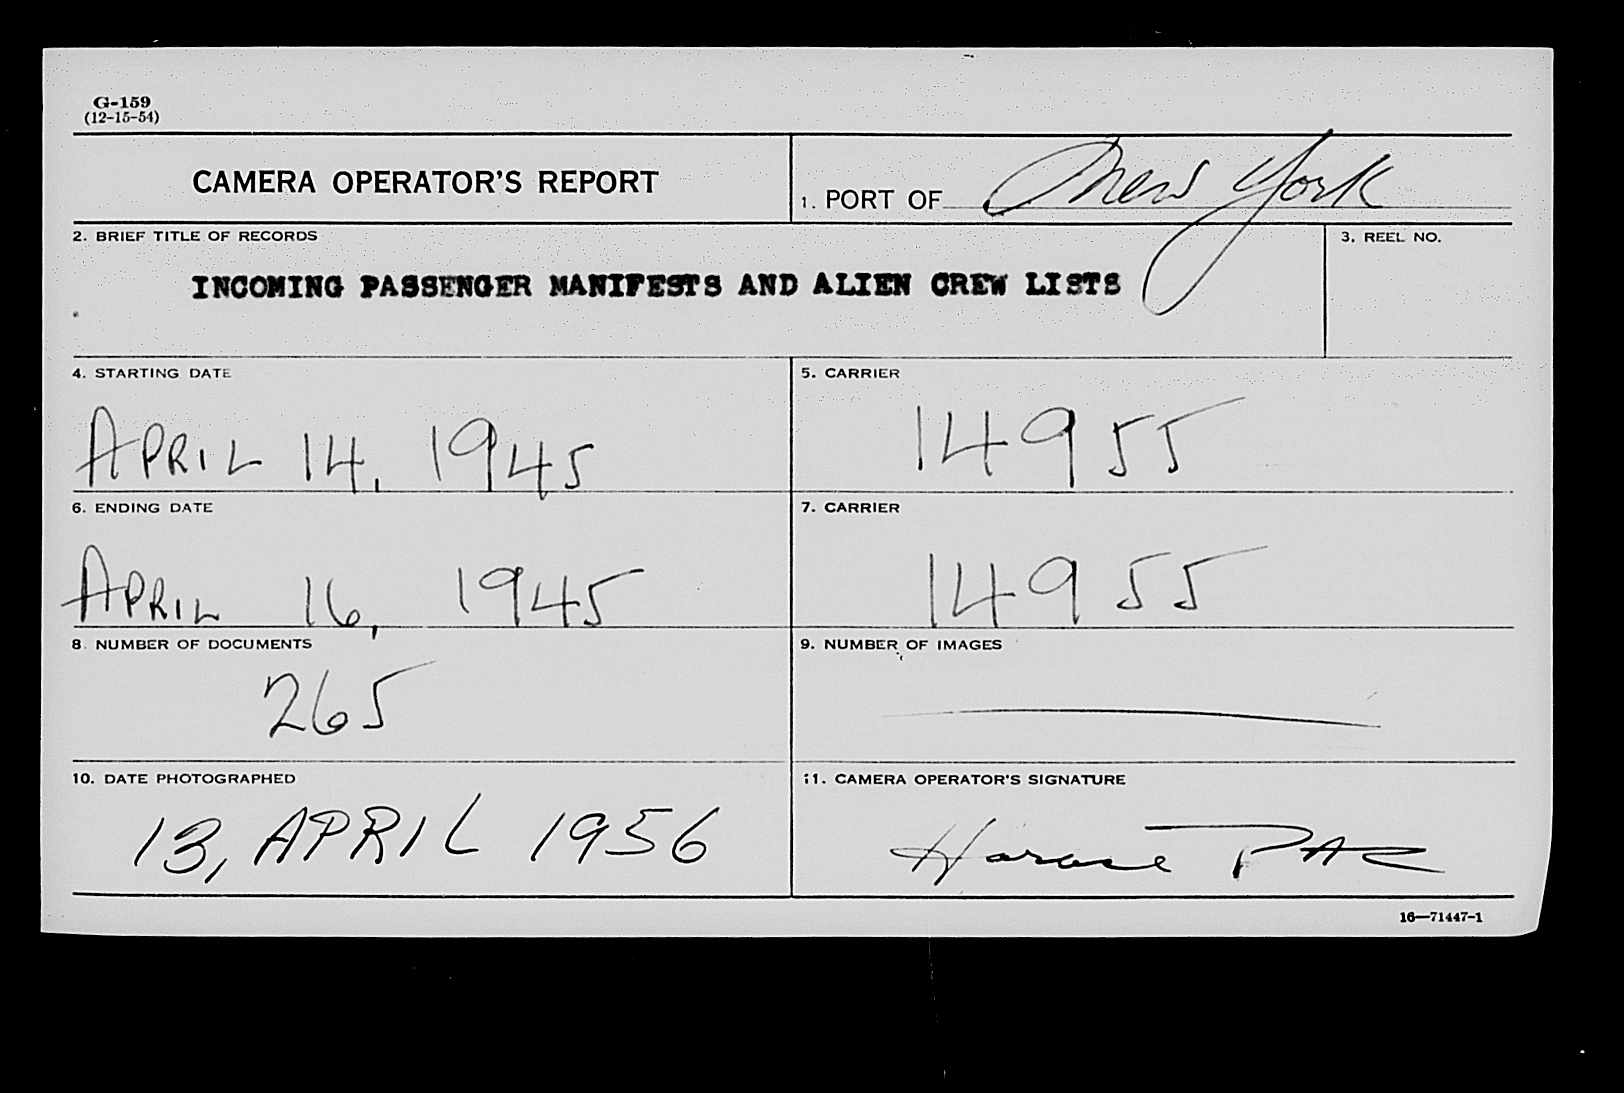 G-159
(12-15-54)
CAMERA OPERATOR'S REPORT
1. PORT OF New York
2. BRIEF TITLE OF RECORDS
3. REEL NO.
INCOMING PASSENGER MANIFESTS AND ALIEN CREW LISTS
4. STARTING DATE
5. CARRIER
APRIL 14, 1945
14955
6. ENDING DATE
7. CARRIER
APRIL 16, 1945
14955
8. NUMBER OF DOCUMENTS
9. NUMBER OF IMAGES
265
10. DATE PHOTOGRAPHED
11. CAMERA OPERATOR'S SIGNATURE
13, APRIL 1956
Horace
16—71447-1